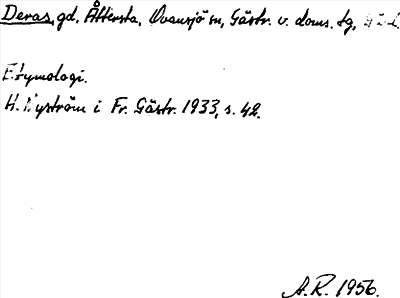 Deras, gd. Åttersta, Ovansjö sn, Gästr. v. doms. tg,
Etymologi.
H. Nyström i Fr. Gästr. 1933, s. 42.
A.R. 1956.